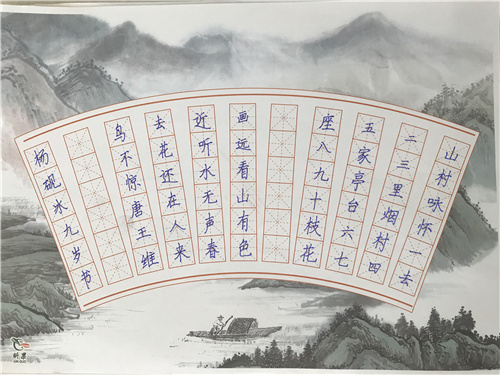 山村咏怀一去
二三里烟村四
五家亭台六七
座八九十枝花
画远看山有色
近听水无声春
去花还在人来
鸟不惊唐王维
杨砚冰九岁节